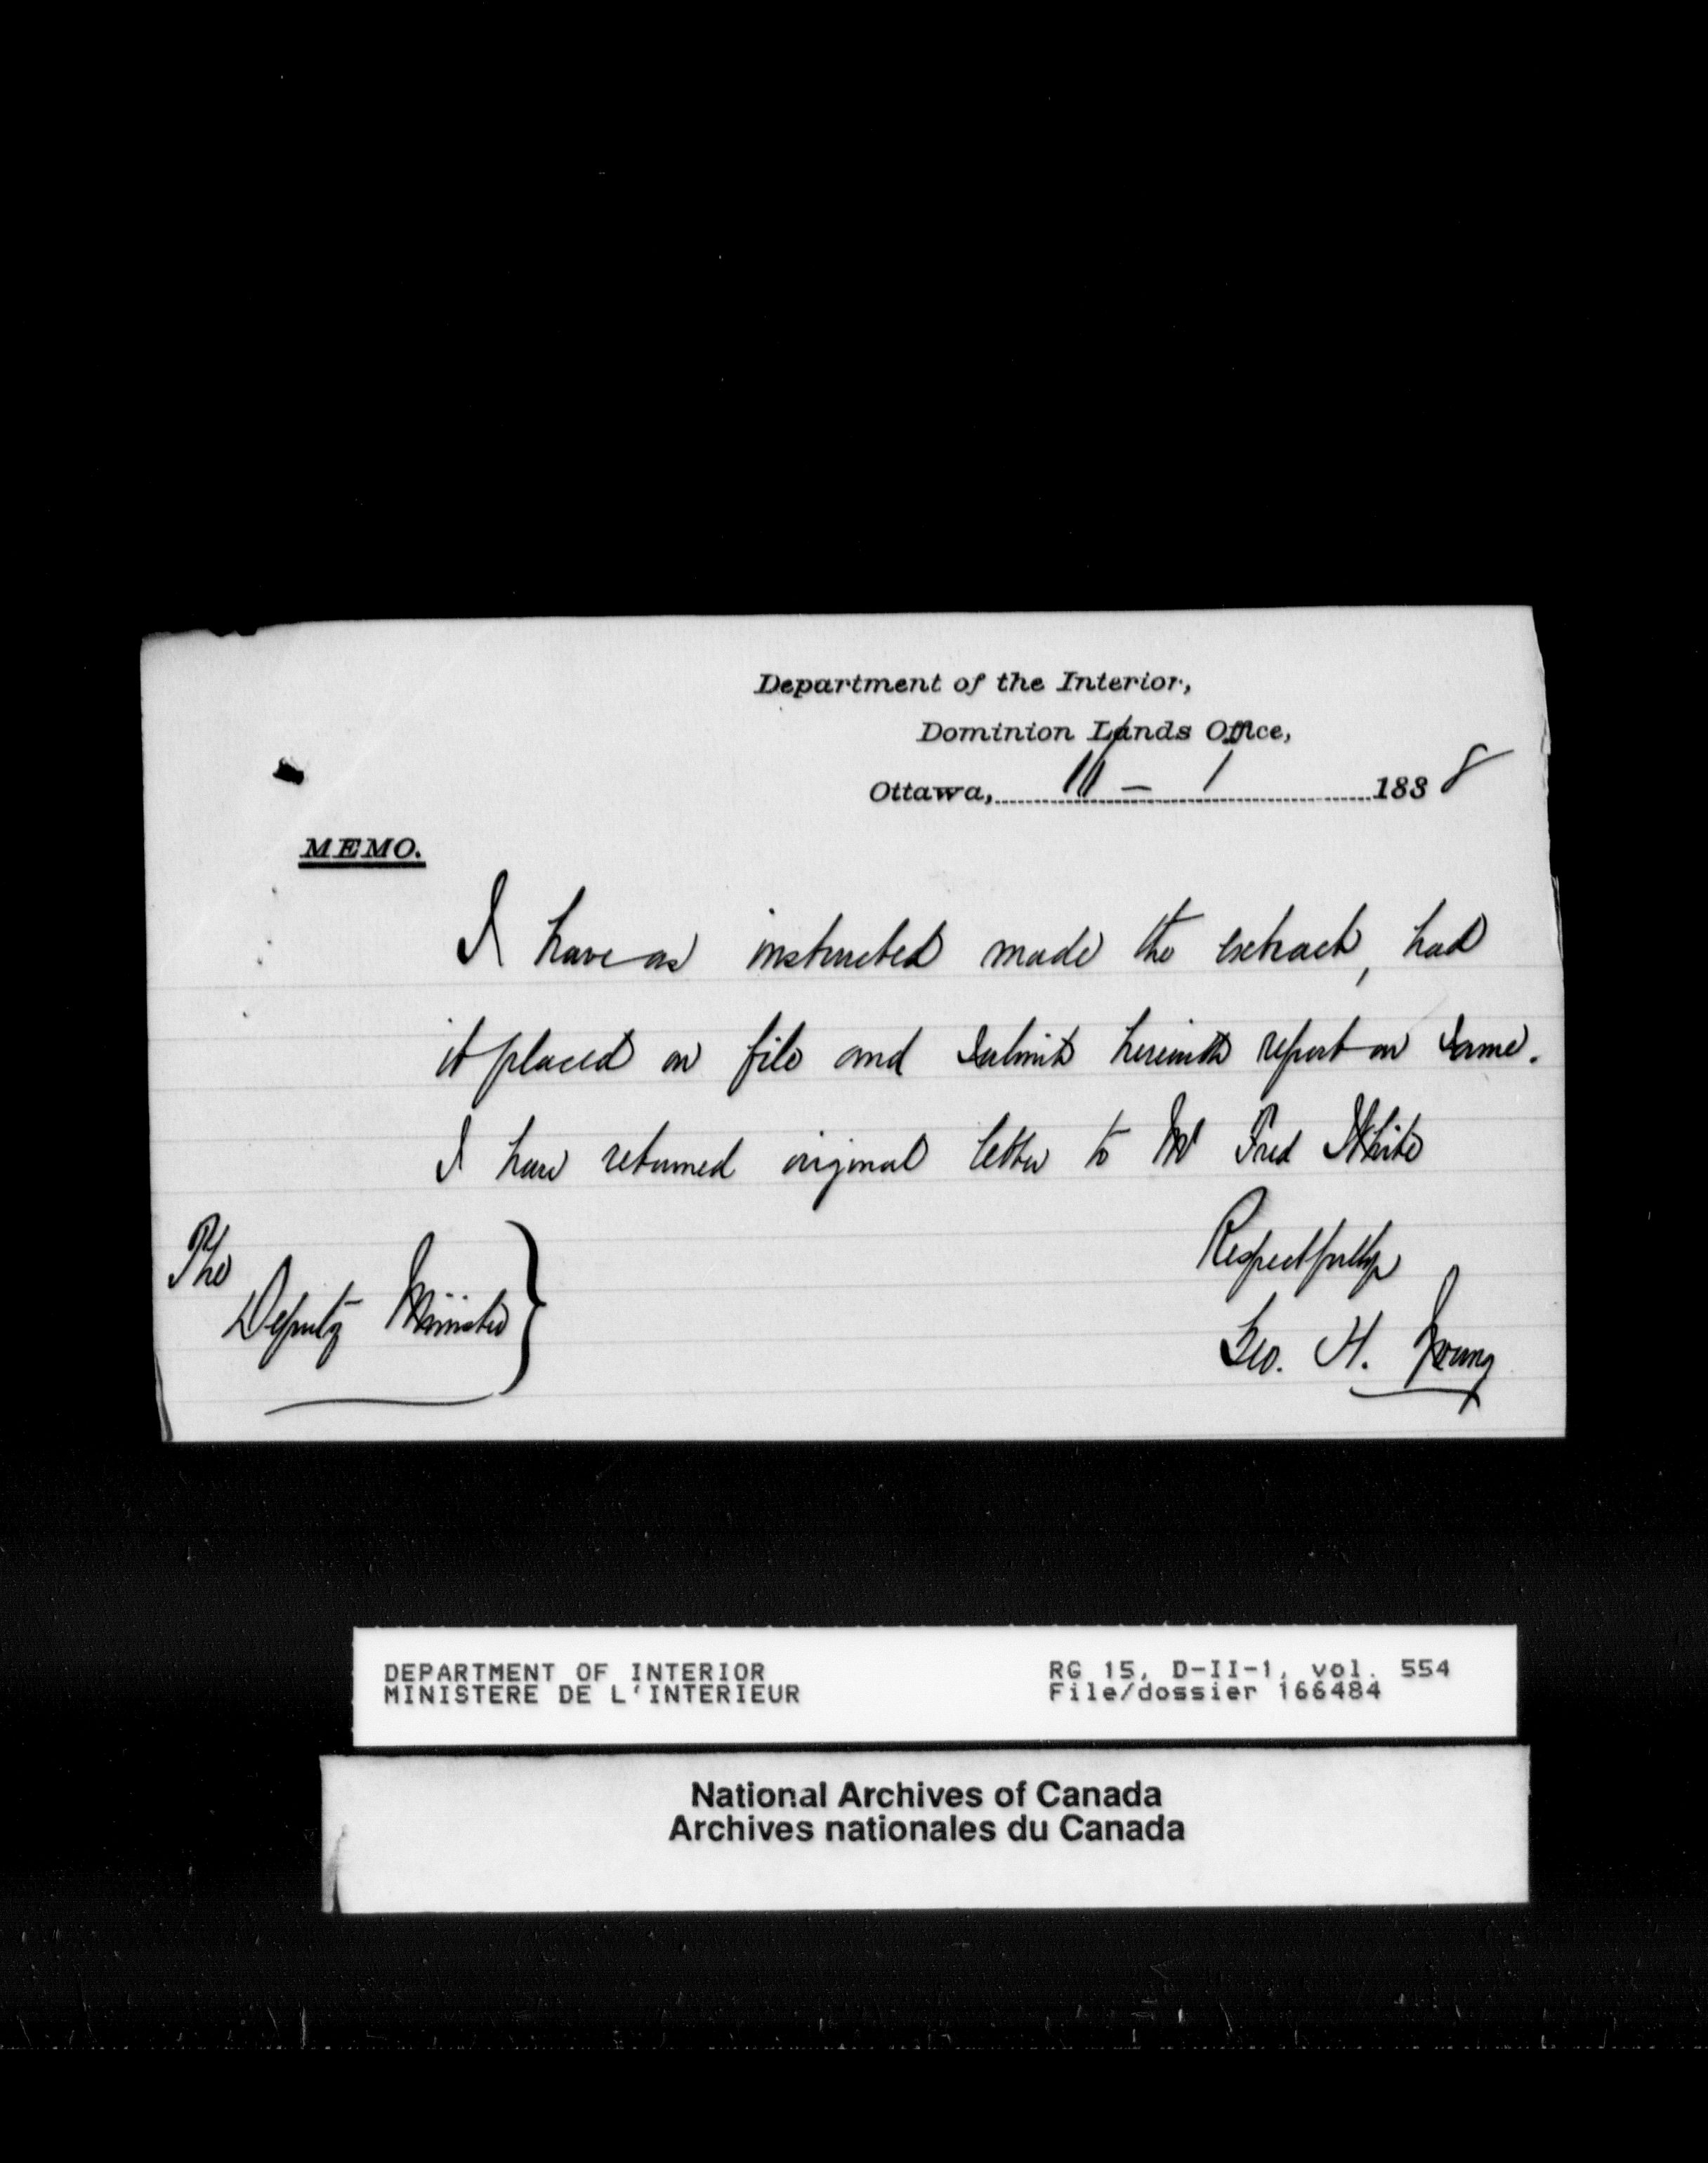 Department of the Interior,
Dominion Lands Office,
Ottawa, 11 - 1 1888
MEMO.
I have as instructed made the extract, had
it placed on file and submit herewith report on same.
I have returned original letter to Mr Fred White
Respectfully
Geo. H. Young
The
Deputy Minister
DEPARTMENT OF INTERIOR
MINISTERE DE L'INTERIEUR
RG 15, D-II-1, vol. 554
File/dossier 166484
National Archives of Canada
Archives nationales du Canada